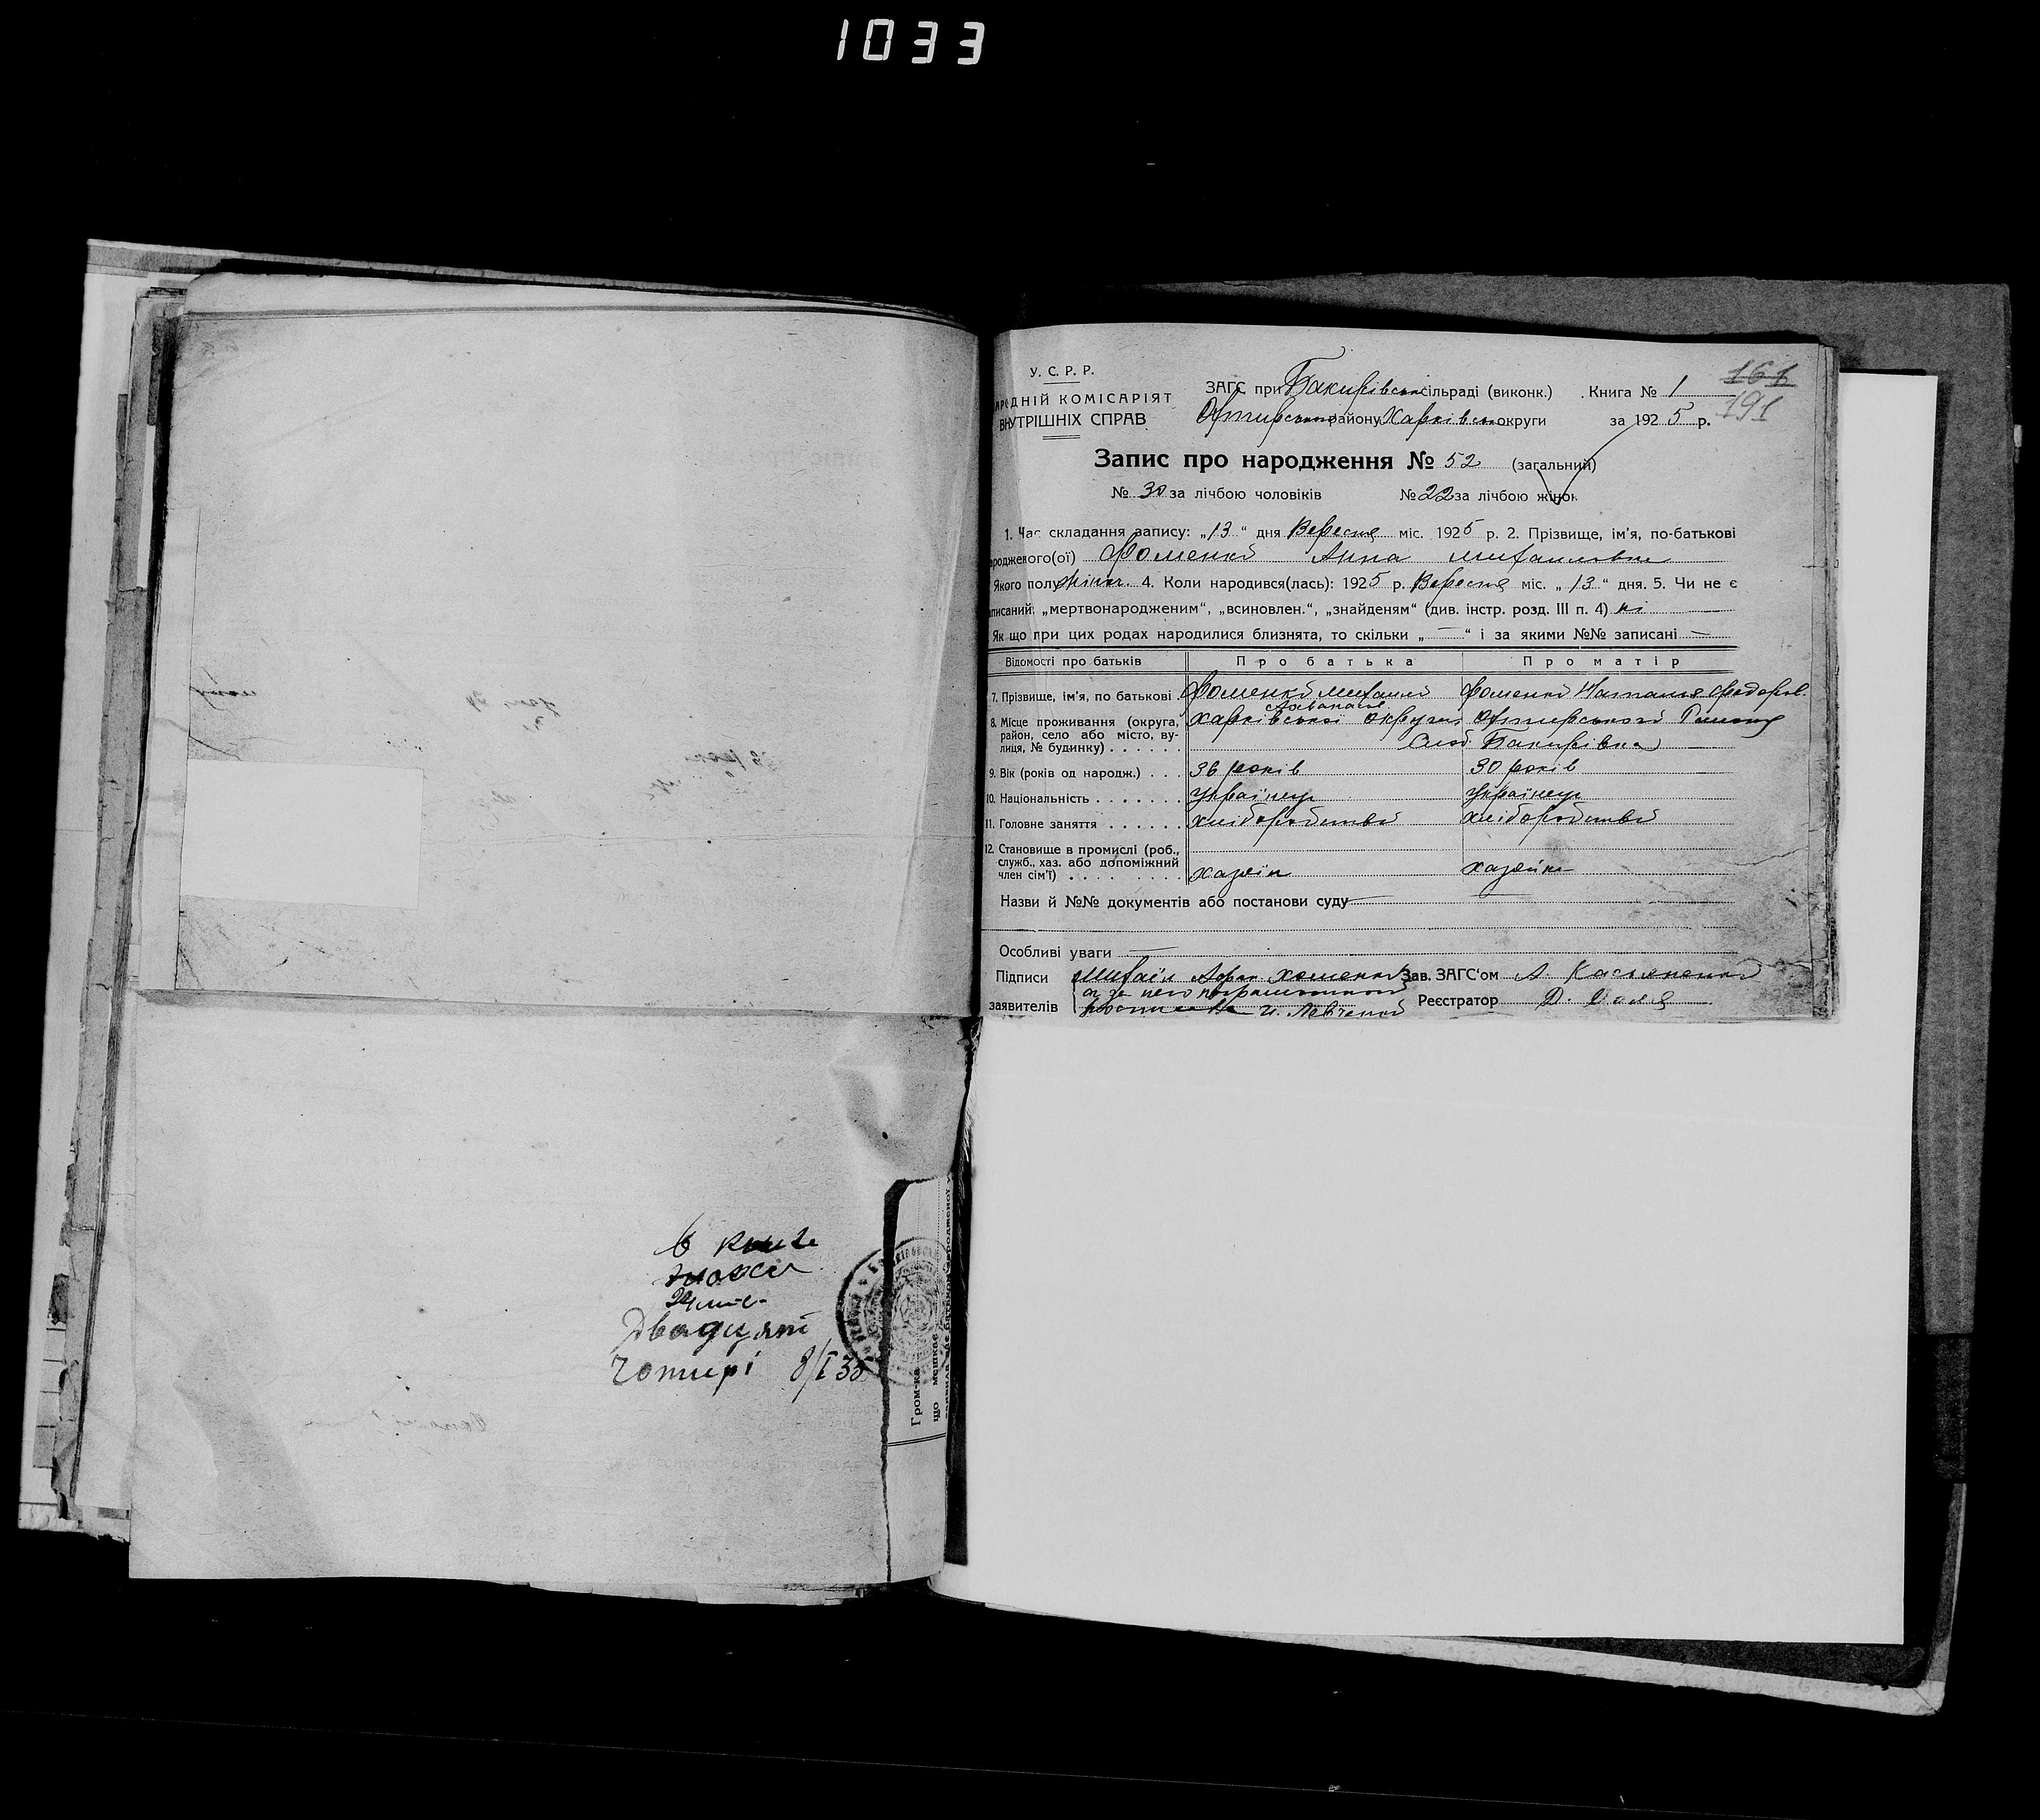 1033
В книзі
24
Двадцят
Чотирі 8/I 35
Гром-ка
що мешкає
У. С. Р. Р.
НАРОДНІЙ КОМІСАРІЯТ
ВНУТРІШНІХ СПРАВ
ЗАГС при Бакирівськ сільраді (виконк.) Книга № 1
161
191
Охтирського району Харківської округи за 1925 р.
Запис про народження № 52 (загальний)
№ 30 за лічбою чоловіків № 22 за лічбою жінок
1. Час складання запису: „13“ дня Вересня міс. 1925 р. 2. Прізвище, ім'я, по-батькові
народженого(ої) Фоменко Анна Михаиловна
Якого полу жіноч. 4. Коли народився(лась): 1925 р. Вересня міс. „13“ дня. 5. Чи не є
записаний: „мертвонародженим“, „всиновлен.“, „знайденям“ (див. інстр. розд. III п. 4) ні
Як що при цих родах народилися близнята, то скільки „—“ і за якими №№ записані —
Відомості про батьків Про батька Про матір
7. Прізвище, ім'я, по батькові Фоменко Михаил Фоменко Наталья Федоров.
8. Місце проживання (округа, район, село або місто, вулиця, № будинку) Харківської округи, Охтирського Району
Слоб. Бакирівка
9. Вік (років од народж.) 36 років 30 років
10. Національність Українец Українец
11. Головне заняття хліборобство хліборобство
12. Становище в промислі (роб., служб., хаз. або допоміжний член сім'ї) хазяїн хазяйка
Назви й №№ документів або постанови суду —
Особливі уваги —
Підписи Михаіл Афан. Хоменко Зав. ЗАГС'ом А. Касьяненко
а за него неграмотного
заявителів И. Левченко Реєстратор Д.